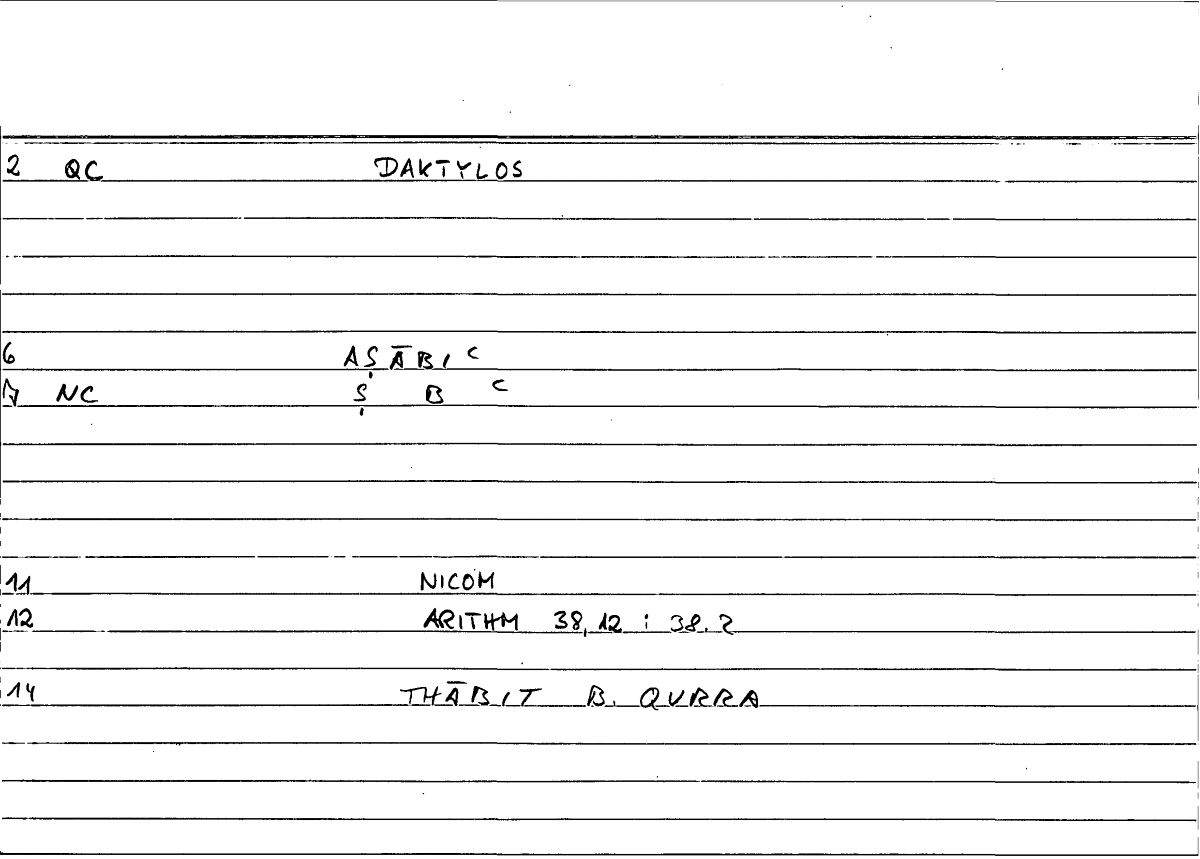 2 QC DAKTYLOS
6 AṢĀBIʿ
7 NC Ṣ B ʿ
11 NICOM
12 ARITHM 38,12 : 38.2
14 THĀBIT B. QURRA